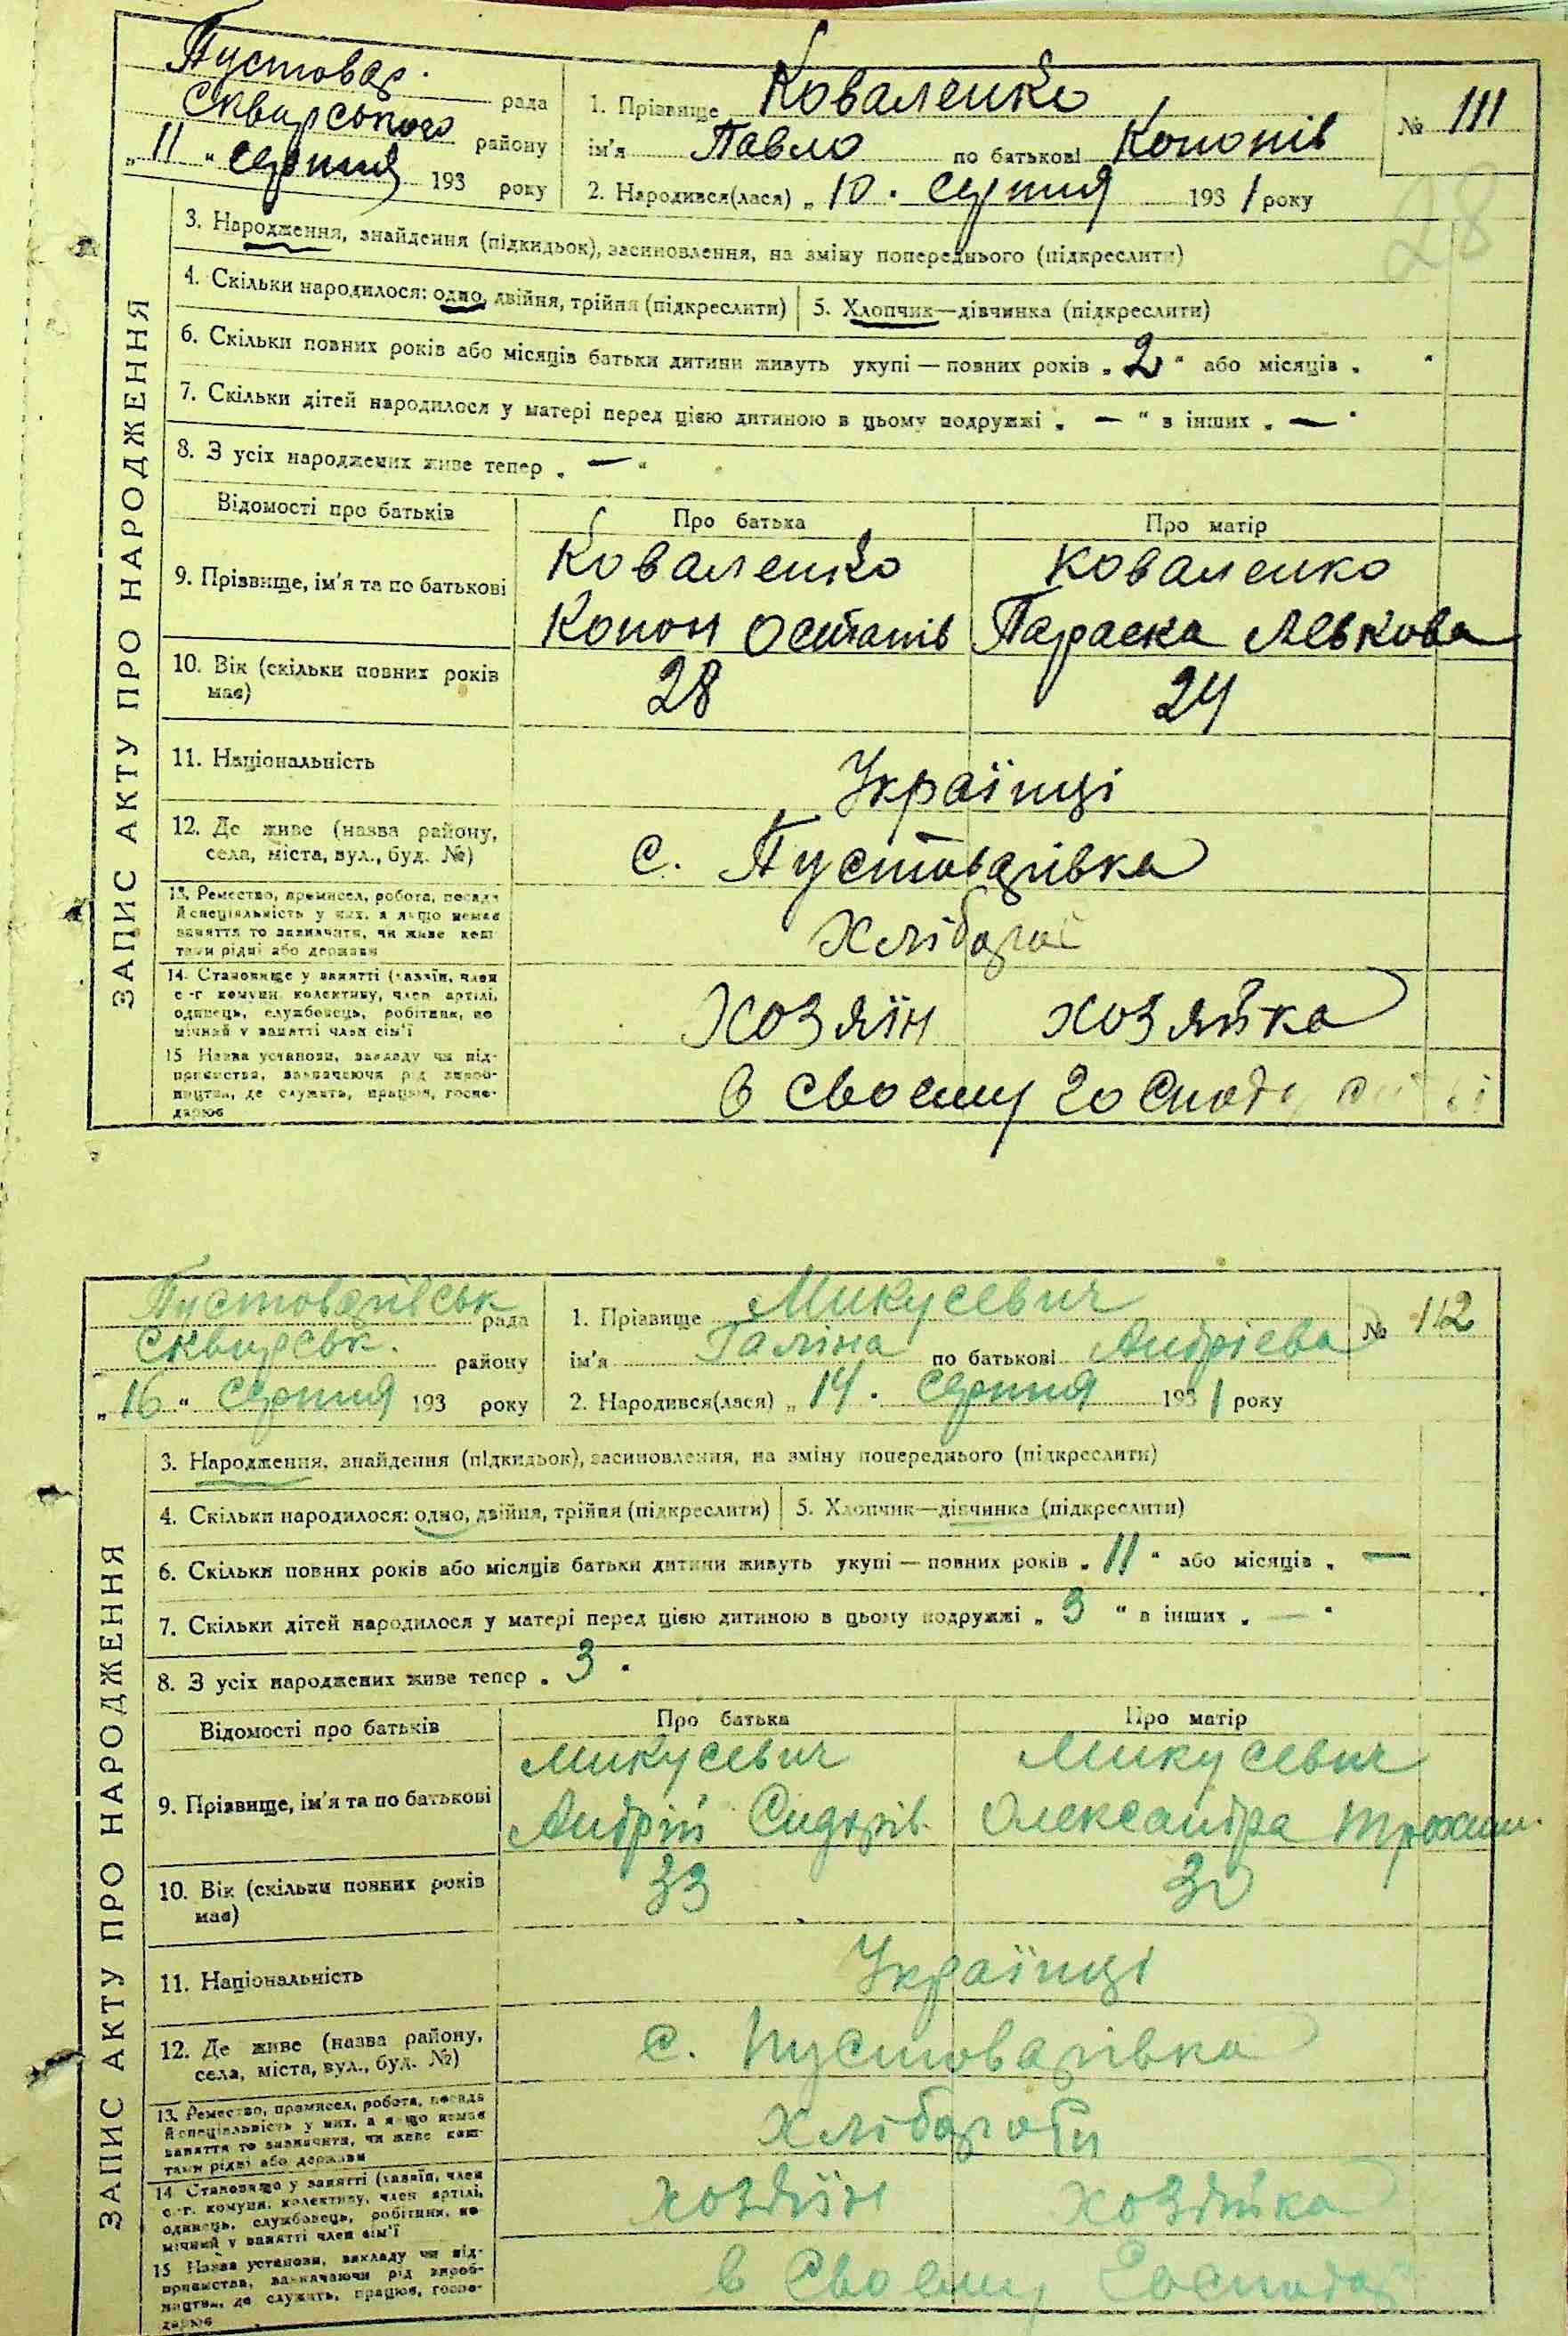 Пустовар.
Сквирського
рада
району
„11“ серпня 193 року
1. Прізвище Коваленко
ім'я Павло по батькові Кононів
№ 111
2. Народився(лася) „10. серпня 1931 року
28
ЗАПИС АКТУ ПРО НАРОДЖЕННЯ
3. Народження, знайдення (підкидьок), засиновлення, на зміну попереднього (підкреслити)
4. Скільки народилося: одно, двійня, трійня (підкреслити)
5. Хлопчик—дівчинка (підкреслити)
6. Скільки повних років або місяців батьки дитини живуть укупі — повних років „2“ або місяців „ “
7. Скільки дітей народилося у матері перед цією дитиною в цьому подружжі „—“ в інших „—“
8. З усіх народжених живе тепер „—“
Відомості про батьків
Про батька
Про матір
9. Прізвище, ім'я та по батькові
Коваленко
Конон Остапів
Коваленко
Параска Левкова
10. Вік (скільки повних років
має)
28
24
11. Національність
Українці
12. Де живе (назва району,
села, міста, вул., буд. №)
с. Пустоварівка
13. Ремество, промисел, робота, посада
й спеціяльність у них, а якщо немає
заняття то зазначити, чи живе кош-
тами рідні або держави
14. Становище у занятті (хазяїн, член
с.-г. комуни, колективу, член артілі,
одинець, службовець, робітник, по-
мічний у занятті член сім'ї
Хозяїн
хозяйка
15 Назва установи, закладу чи під-
приємства, зазначаючи рід вироб-
ництва, де служить, працює, госпо-
дарює
в своєму
Пустоварівськ
рада
Сквирськ.
району
„16“ серпня 193 року
1. Прізвище Микусевич
ім'я Галіна по батькові Андрієва
№ 112
2. Народився(лася) „14. серпня 1931 року
ЗАПИС АКТУ ПРО НАРОДЖЕННЯ
3. Народження, знайдення (підкидьок), засиновлення, на зміну попереднього (підкреслити)
4. Скільки народилося: одно, двійня, трійня (підкреслити)
5. Хлопчик—дівчинка (підкреслити)
6. Скільки повних років або місяців батьки дитини живуть укупі — повних років „11“ або місяців „—
7. Скільки дітей народилося у матері перед цією дитиною в цьому подружжі „3“ в інших „—“
8. З усіх народжених живе тепер „3“
Відомості про батьків
Про батька
Про матір
9. Прізвище, ім'я та по батькові
Микусевич
Андрій Сидорів.
Микусевич
Олександра Трохим.
10. Вік (скільки повних років
має)
33
30
11. Національність
Українці
12. Де живе (назва району,
села, міста, вул., буд. №)
с. Пустоварівка
13. Ремество, промисел, робота, посада
й спеціяльність у них, а якщо немає
заняття то зазначити, чи живе кош-
тами рідні або держави
Хлібороби
14 Становище у занятті (хазяїн, член
с.-г. комуни, колективу, член артілі,
одинець, службовець, робітник, по-
мічний у занятті член сім'ї
хозяїн
хозяйка
15 Назва установи, закладу чи під-
приємства, зазначаючи рід вироб-
ництва, де служить, працює, госпо-
дарює
в своєму